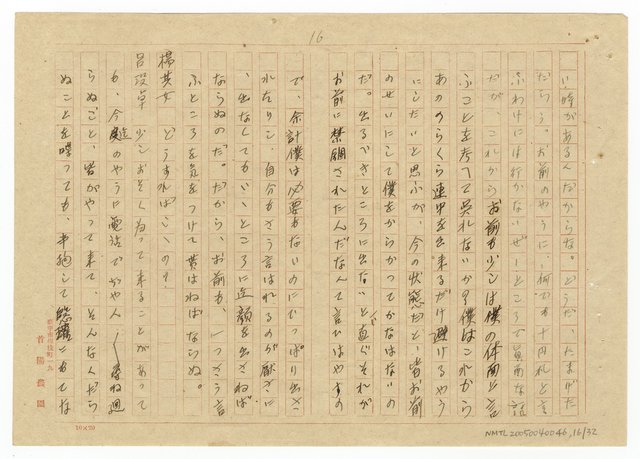 16
い時があるんだからな。どうだ、たまげた
だらう。お前のやうに、何でも十円札と言
ふわけには行かないぜ——ところで真面目な話
だが、これからお前も少しは僕の体面と言
ふことを考へて呉れないか？僕はこれから
あののらくら連中を出来るだけ避けるやう
にしたいと思ふが、今の状態だと、皆お前
のせいにして僕をからかつてかなはないの
だ。出るべきところに出ないと直ぐそれが
お前に禁錮されたんだなんて言ひはやすの
で、余計僕は必要もないのにでつぱり出さ
れたりし、自分もさう言はれるのが厭さに
、出なくてもいいところに迄顔を出さねば
ならぬのだ。だから、お前も、一つさう言
ふところを気をつけて貰はねばならぬ。
楊其女　どうすればいいの？
呂從卓　少しおそくなつて来ることがあつて
も、今度迄のやうに電話で
らぬこと、皆がやつて来て、どんなくだら
ぬことを喋つても、辛抱して
首陽農園
10×20
NMTL20050040046,16/32